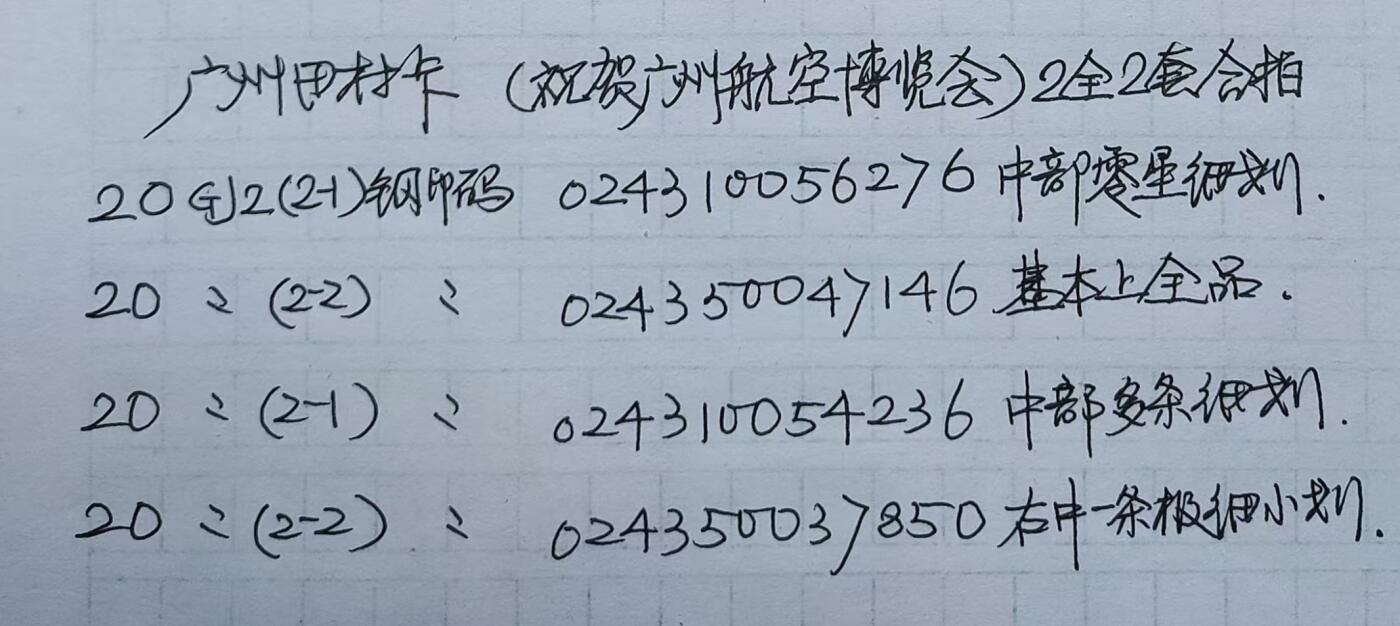 广州田村卡（祝贺广州航空博览会）2全2套合拍
20G J2(2-1)钢印码 024310056276 中部零星细划.
20 〃 (2-2) 〃 024350047146 基本上全品.
20 〃 (2-1) 〃 024310054236 中部多条细划.
20 〃 (2-2) 〃 024350037850 右中一条极细小划.